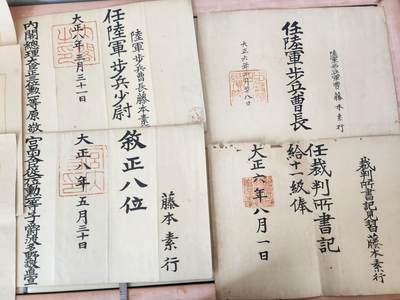 陸軍歩兵曹長藤本素行
任陸軍歩兵曹長
大正六年
陸軍歩兵曹長藤本素
任陸軍歩兵少尉
大正八年三月三十一日
内閣総理大臣正三位勲一等原敬
裁判所書記見習藤本素行
任裁判所書記
給十一級俸
大正六年八月一日
藤本素行
叙正八位
大正八年五月三十日
宮内大臣従二位勲一等子爵波多野敬直